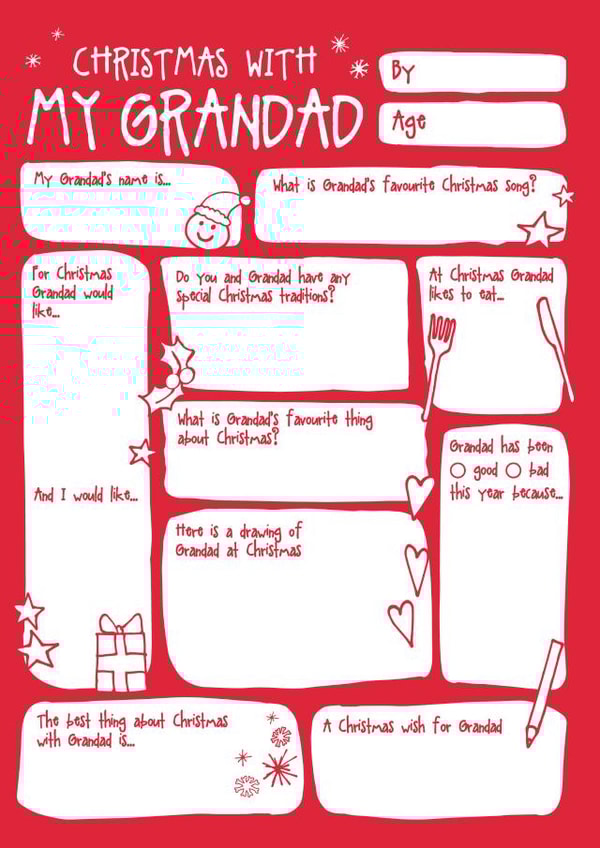 CHRISTMAS WITH
MY GRANDAD
By
Age
My Grandad's name is...
What is Grandad's favourite Christmas song?
For Christmas
Grandad would
like...
And I would like...
Do you and Grandad have any
special Christmas traditions?
At Christmas Grandad
likes to eat...
What is Grandad's favourite thing
about Christmas?
Grandad has been
good bad
this year because...
Here is a drawing of
Grandad at Christmas
The best thing about Christmas
with Grandad is...
A Christmas wish for Grandad